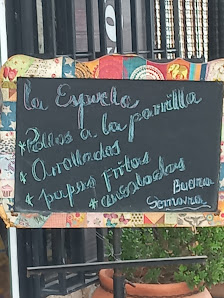 la Espuela
*Pollos a la parrilla
*Arrollados
*papas Fritas
*ensaladas
Buena
Semana